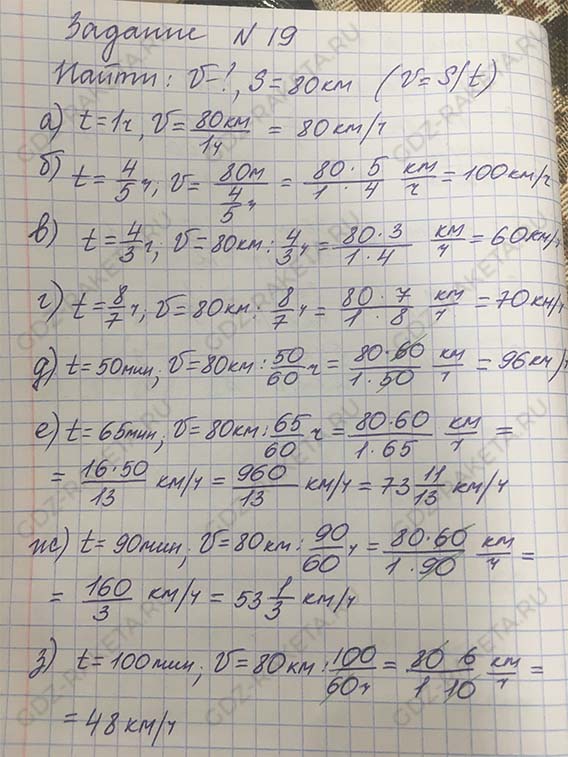 Задание N 19
Найти: V-?, S=80км (V=S/t)
а) t=1ч, V=80км/1ч = 80км/ч
б) t=4/5 ч; V= 80м/(4/5 ч) = (80·5)/(1·4) км/ч = 100км/ч
в) t=4/3 ч; V=80км : 4/3 ч = (80·3)/(1·4) км/ч = 60км/ч
г) t=8/7 ч; V=80км : 8/7 ч = (80·7)/(1·8) км/ч = 70км/ч
д) t=50мин; V=80км : 50/60 ч = (80·60)/(1·50) км/ч = 96км/ч
е) t=65мин; V=80км : 65/60 ч = (80·60)/(1·65) км/ч =
= (16·50)/13 км/ч = 960/13 км/ч = 73 11/13 км/ч
ж) t=90мин; V=80км : 90/60 ч = (80·60)/(1·90) км/ч =
= 160/3 км/ч = 53 1/3 км/ч
з) t=100мин; V=80км : 100/60ч = (80 6)/(1 10) км/ч =
= 48км/ч
GDZ-RAKETA.RU